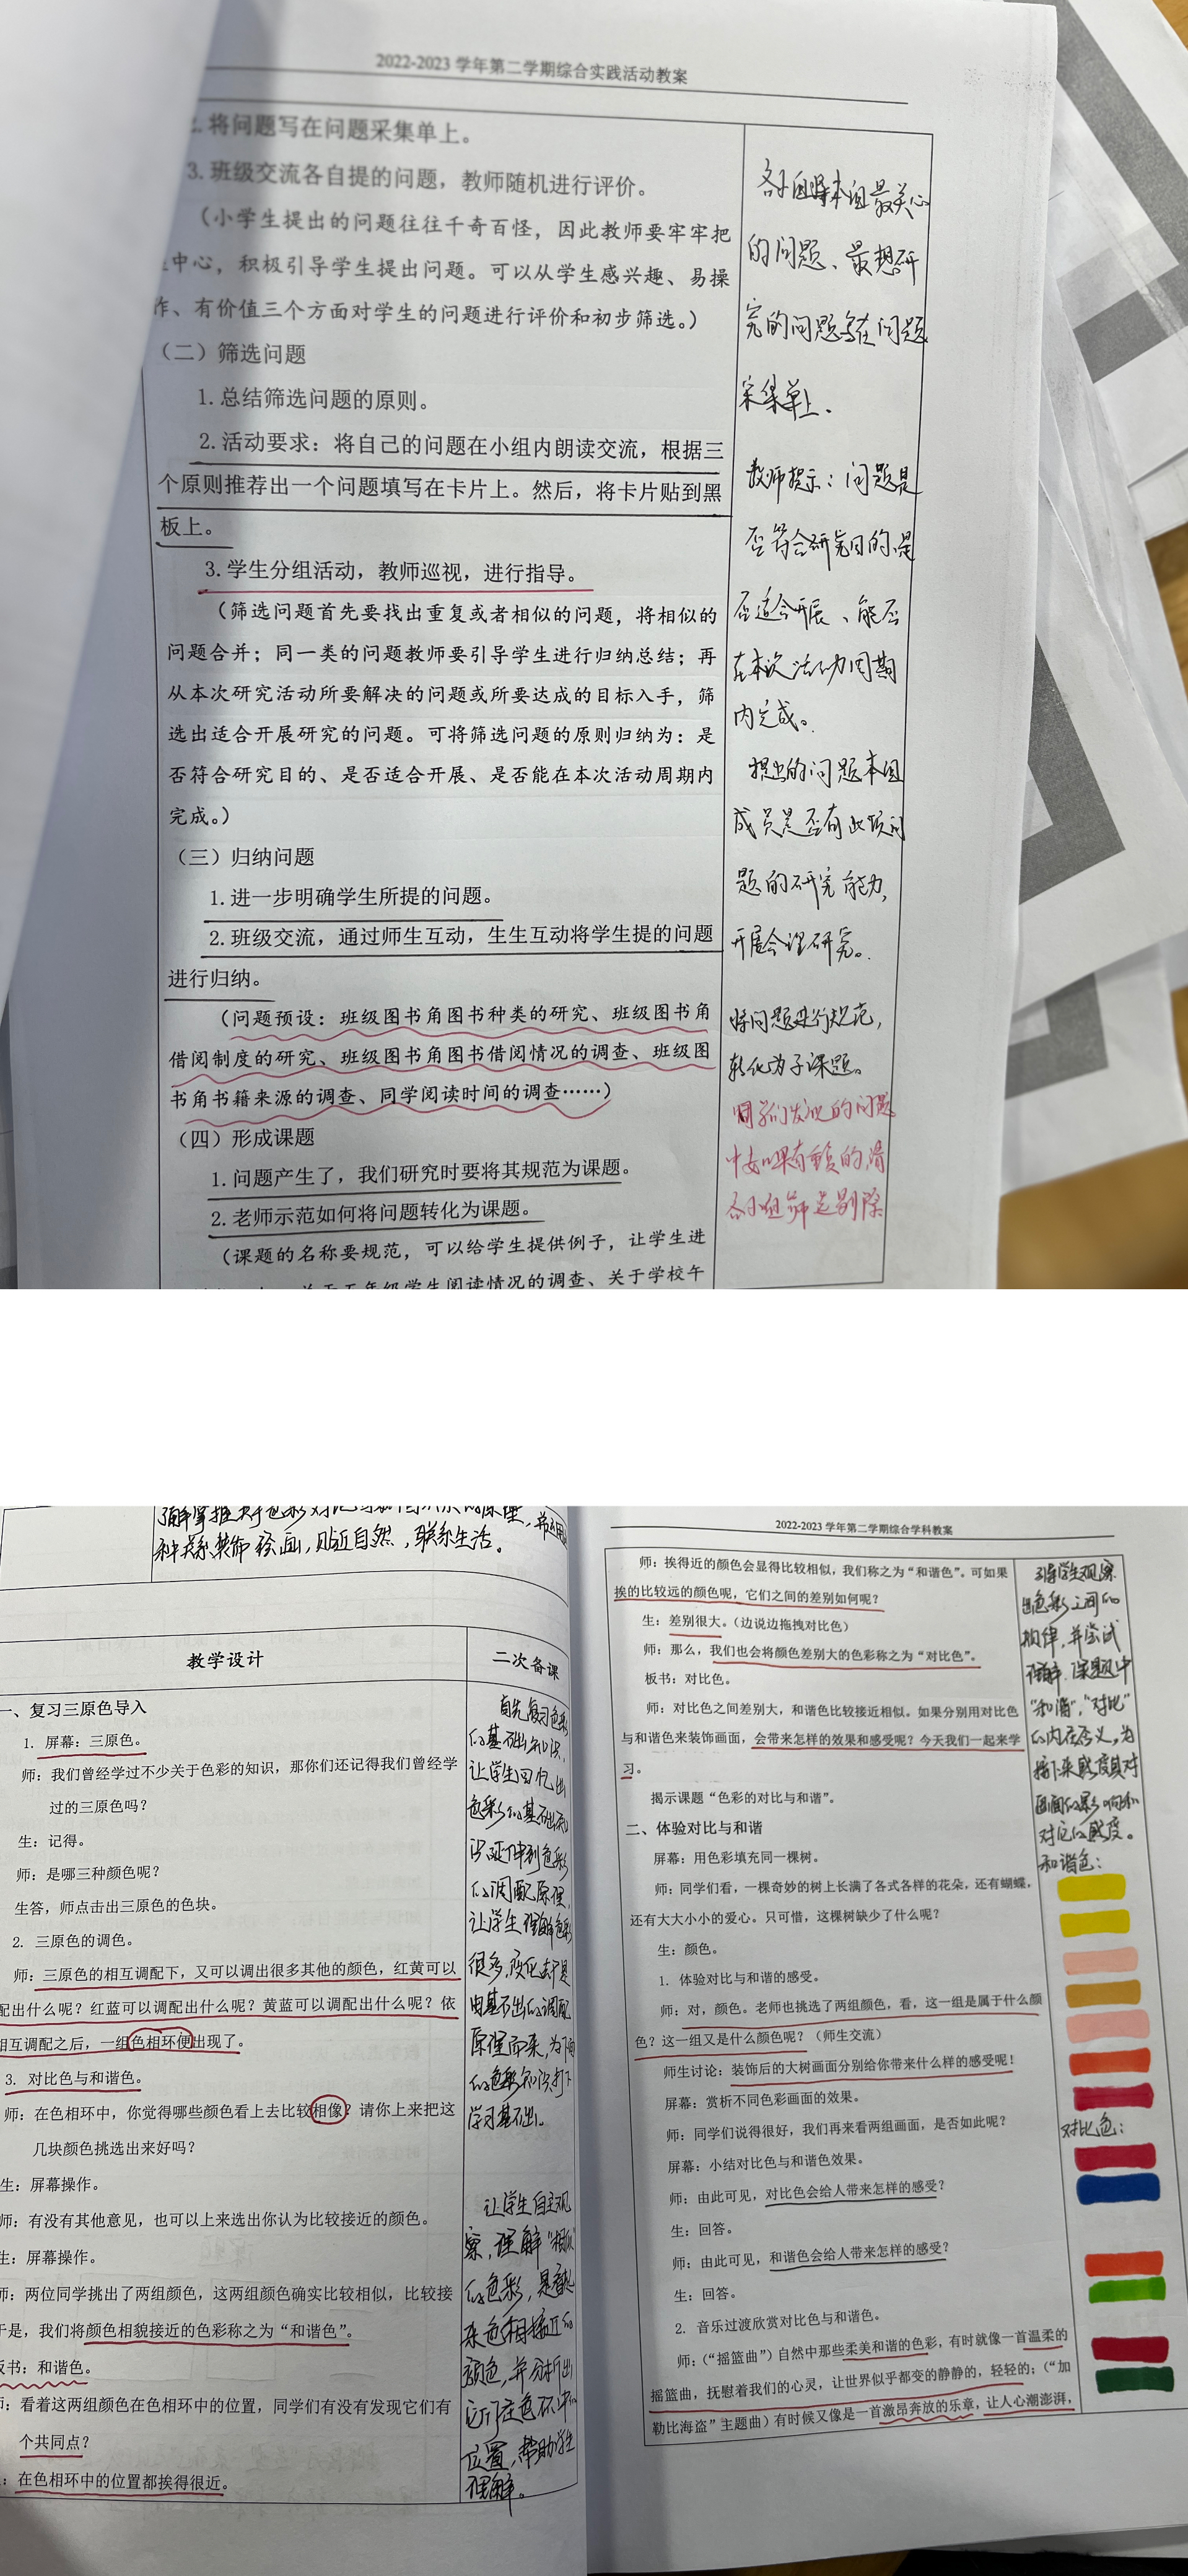 2022-2023 学年第二学期综合实践活动教案
2. 将问题写在问题采集单上。
3. 班级交流各自提的问题，教师随机进行评价。
（小学生提出的问题往往千奇百怪，因此教师要牢牢把
中心，积极引导学生提出问题。可以从学生感兴趣、易操
作、有价值三个方面对学生的问题进行评价和初步筛选。）
（二）筛选问题
1. 总结筛选问题的原则。
2. 活动要求：将自己的问题在小组内朗读交流，根据三
个原则推荐出一个问题填写在卡片上。然后，将卡片贴到黑
板上。
3. 学生分组活动，教师巡视，进行指导。
（筛选问题首先要找出重复或者相似的问题，将相似的
问题合并；同一类的问题教师要引导学生进行归纳总结；再
从本次研究活动所要解决的问题或所要达成的目标入手，筛
选出适合开展研究的问题。可将筛选问题的原则归纳为：是
否符合研究目的、是否适合开展、是否能在本次活动周期内
完成。）
（三）归纳问题
1. 进一步明确学生所提的问题。
2. 班级交流，通过师生互动，生生互动将学生提的问题
进行归纳。
（问题预设：班级图书角图书种类的研究、班级图书角
借阅制度的研究、班级图书角图书借阅情况的调查、班级图
书角书籍来源的调查、同学阅读时间的调查……）
（四）形成课题
1. 问题产生了，我们研究时要将其规范为课题。
2. 老师示范如何将问题转化为课题。
（课题的名称要规范，可以给学生提供例子，让学生进
关于五年级学生阅读情况的调查、关于学校午
各小组将本组最关心
的问题、最想研
究的问题写在问题
采集单上.
教师提示：问题是
否符合研究目的、是
否适合开展、能否
在本次活动周期
内完成。
提出的问题本组
成员是否有此项问
题的研究能力，
开展合理研究。
将问题进行规范，
转化为子课题。
同学们发现的问题
中如果有重复的，请
各小组筛选剔除
了解掌握关于色彩对比与和
种关系装饰绘画，贴近自然，联系生活。
教学设计
二次备课
一、复习三原色导入
1. 屏幕：三原色。
师：我们曾经学过不少关于色彩的知识，那你们还记得我们曾经学
过的三原色吗？
生：记得。
师：是哪三种颜色呢？
生答，师点击出三原色的色块。
2. 三原色的调色。
师：三原色的相互调配下，又可以调出很多其他的颜色，红黄可以
配出什么呢？红蓝可以调配出什么呢？黄蓝可以调配出什么呢？依
相互调配之后，一组色相环便出现了。
3. 对比色与和谐色。
师：在色相环中，你觉得哪些颜色看上去比较相像？请你上来把这
几块颜色挑选出来好吗？
生：屏幕操作。
师：有没有其他意见，也可以上来选出你认为比较接近的颜色。
生：屏幕操作。
师：两位同学挑出了两组颜色，这两组颜色确实比较相似，比较接
于是，我们将颜色相貌接近的色彩称之为“和谐色”。
板书：和谐色。
师：看着这两组颜色在色相环中的位置，同学们有没有发现它们有
个共同点？
：在色相环中的位置都挨得很近。
首先复习色彩
的基础知识，
让学生回忆出
色彩的基础知
识延伸到色彩
的调配原理，
让学生理解色彩
很多，变化去于是
由基础的调配
原理而来，为下面
的色彩知识打下
学习基础。
让学生自主观
察，理解“相似”
的色彩，是指
来色相接近的
颜色，并分析出
它们在色环中的
位置，帮助学生
理解。
2022-2023 学年第二学期综合学科教案
师：挨得近的颜色会显得比较相似，我们称之为“和谐色”。可如果
挨的比较远的颜色呢，它们之间的差别如何呢？
生：差别很大。（边说边拖拽对比色）
师：那么，我们也会将颜色差别大的色彩称之为“对比色”。
板书：对比色。
师：对比色之间差别大，和谐色比较接近相似。如果分别用对比色
与和谐色来装饰画面，会带来怎样的效果和感受呢？今天我们一起来学
习。
揭示课题“色彩的对比与和谐”。
二、体验对比与和谐
屏幕：用色彩填充同一棵树。
师：同学们看，一棵奇妙的树上长满了各式各样的花朵，还有蝴蝶，
还有大大小小的爱心。只可惜，这棵树缺少了什么呢？
生：颜色。
1. 体验对比与和谐的感受。
师：对，颜色。老师也挑选了两组颜色，看，这一组是属于什么颜
色？这一组又是什么颜色呢？（师生交流）
师生讨论：装饰后的大树画面分别给你带来什么样的感受呢！
屏幕：赏析不同色彩画面的效果。
师：同学们说得很好，我们再来看两组画面，是否如此呢？
屏幕：小结对比色与和谐色效果。
师：由此可见，对比色会给人带来怎样的感受？
生：回答。
师：由此可见，和谐色会给人带来怎样的感受？
生：回答。
2. 音乐过渡欣赏对比色与和谐色。
师：（“摇篮曲”）自然中那些柔美和谐的色彩，有时就像一首温柔的
摇篮曲，抚慰着我们的心灵，让世界似乎都变的静静的，轻轻的；（“加
勒比海盗”主题曲）有时候又像是一首激昂奔放的乐章，让人心潮澎湃，
引导学生观察
出色彩之间的
规律，并尝试
理解课题中
“和谐”，“对比”
的内在含义，为
接下来感受其对
画面的影响和
对它的感度。
和谐色：
对比色：